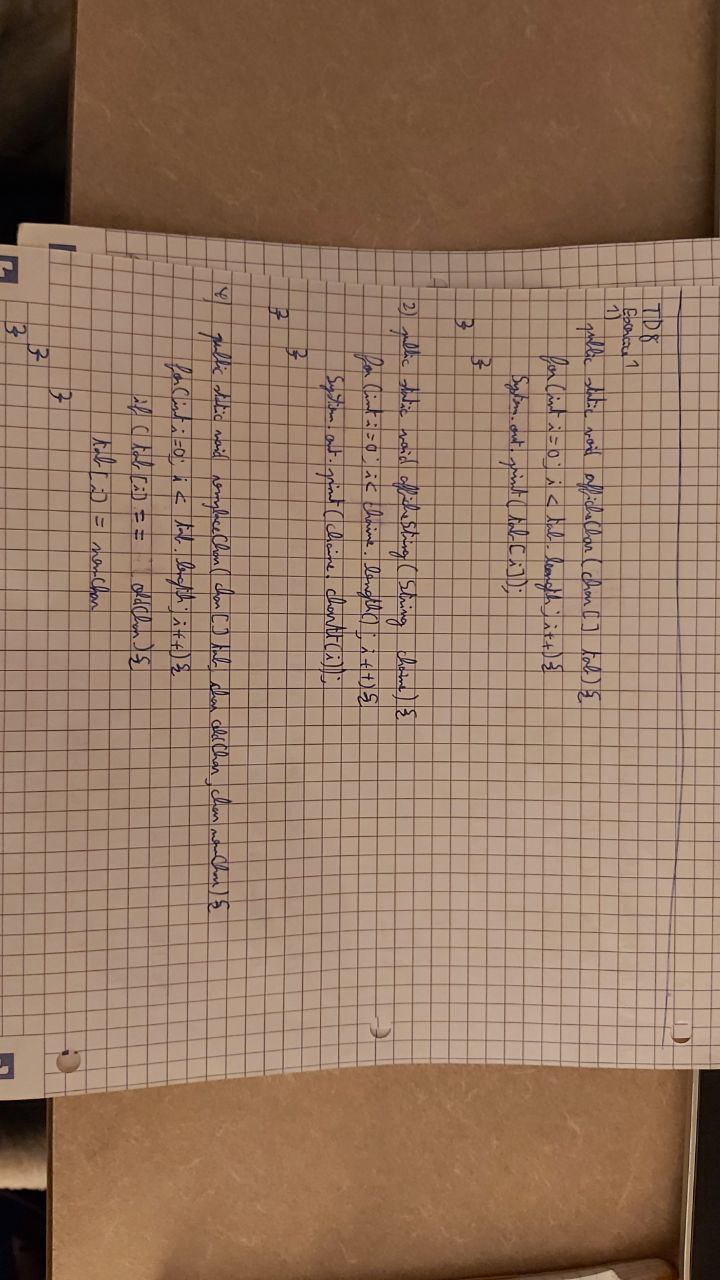 TD 8
Exercice 1
1)
public static void afficheChar(char[] tab){
for(int i=0; i < tab.length; i++){
System.out.print(tab[i]);
}
}
2) public static void afficheString(String chaine){
for(int i=0; i< chaine.length(); i++){
System.out.print(chaine.charAt(i));
}
}
public static void remplaceChar(char[] tab, char oldChar, char newChar){
for(int i=0; i < tab.length; i++){
if (tab[i] == oldChar){
tab[i] = newChar
}
}
}